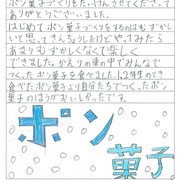 ポン菓子づくりをたいけんさせてくださって
ありがとうございました。
はじめてポン菓子づくりをするのはむずかし
いと思ってきんちょうしたけどやってみたら
あまりむずかしくなくて楽しく
できました。かえりの車の中でみんなで
つくったポン菓子を食べました。1,2年生のとき
食べたポン菓子より自分たちでつくったポン
菓子のほうがおいしかったです。
ポン
菓子